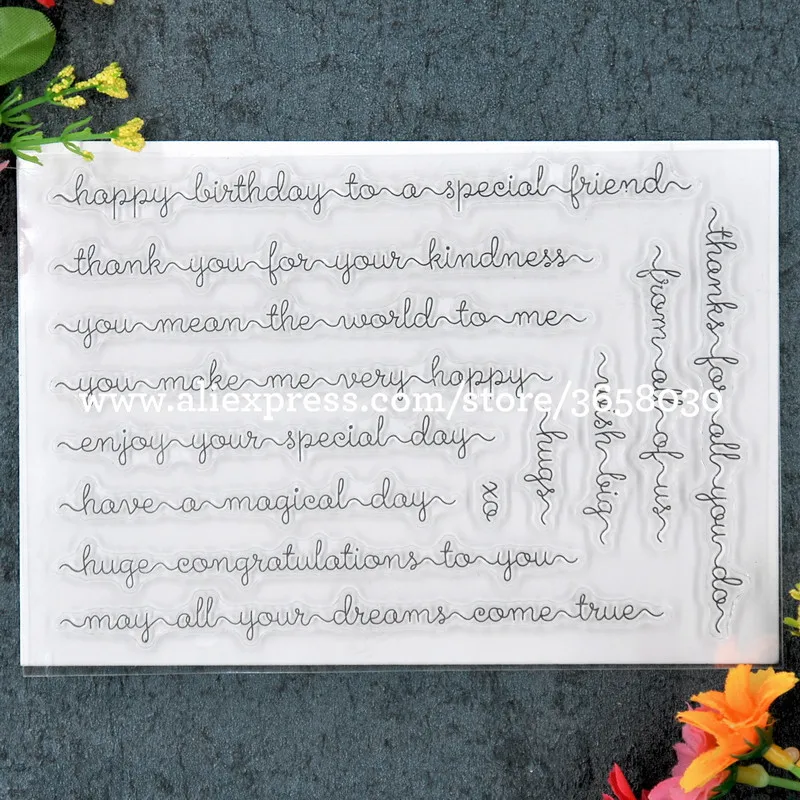 happy birthday to a special friend
thank you for your kindness
you mean the world to me
you make me very happy
www.aliexpress.com/store/3658030
enjoy your special day
have a magical day
huge congratulations to you
may all your dreams come true
xo
hugs
wish big
from all of us
thanks for all you do